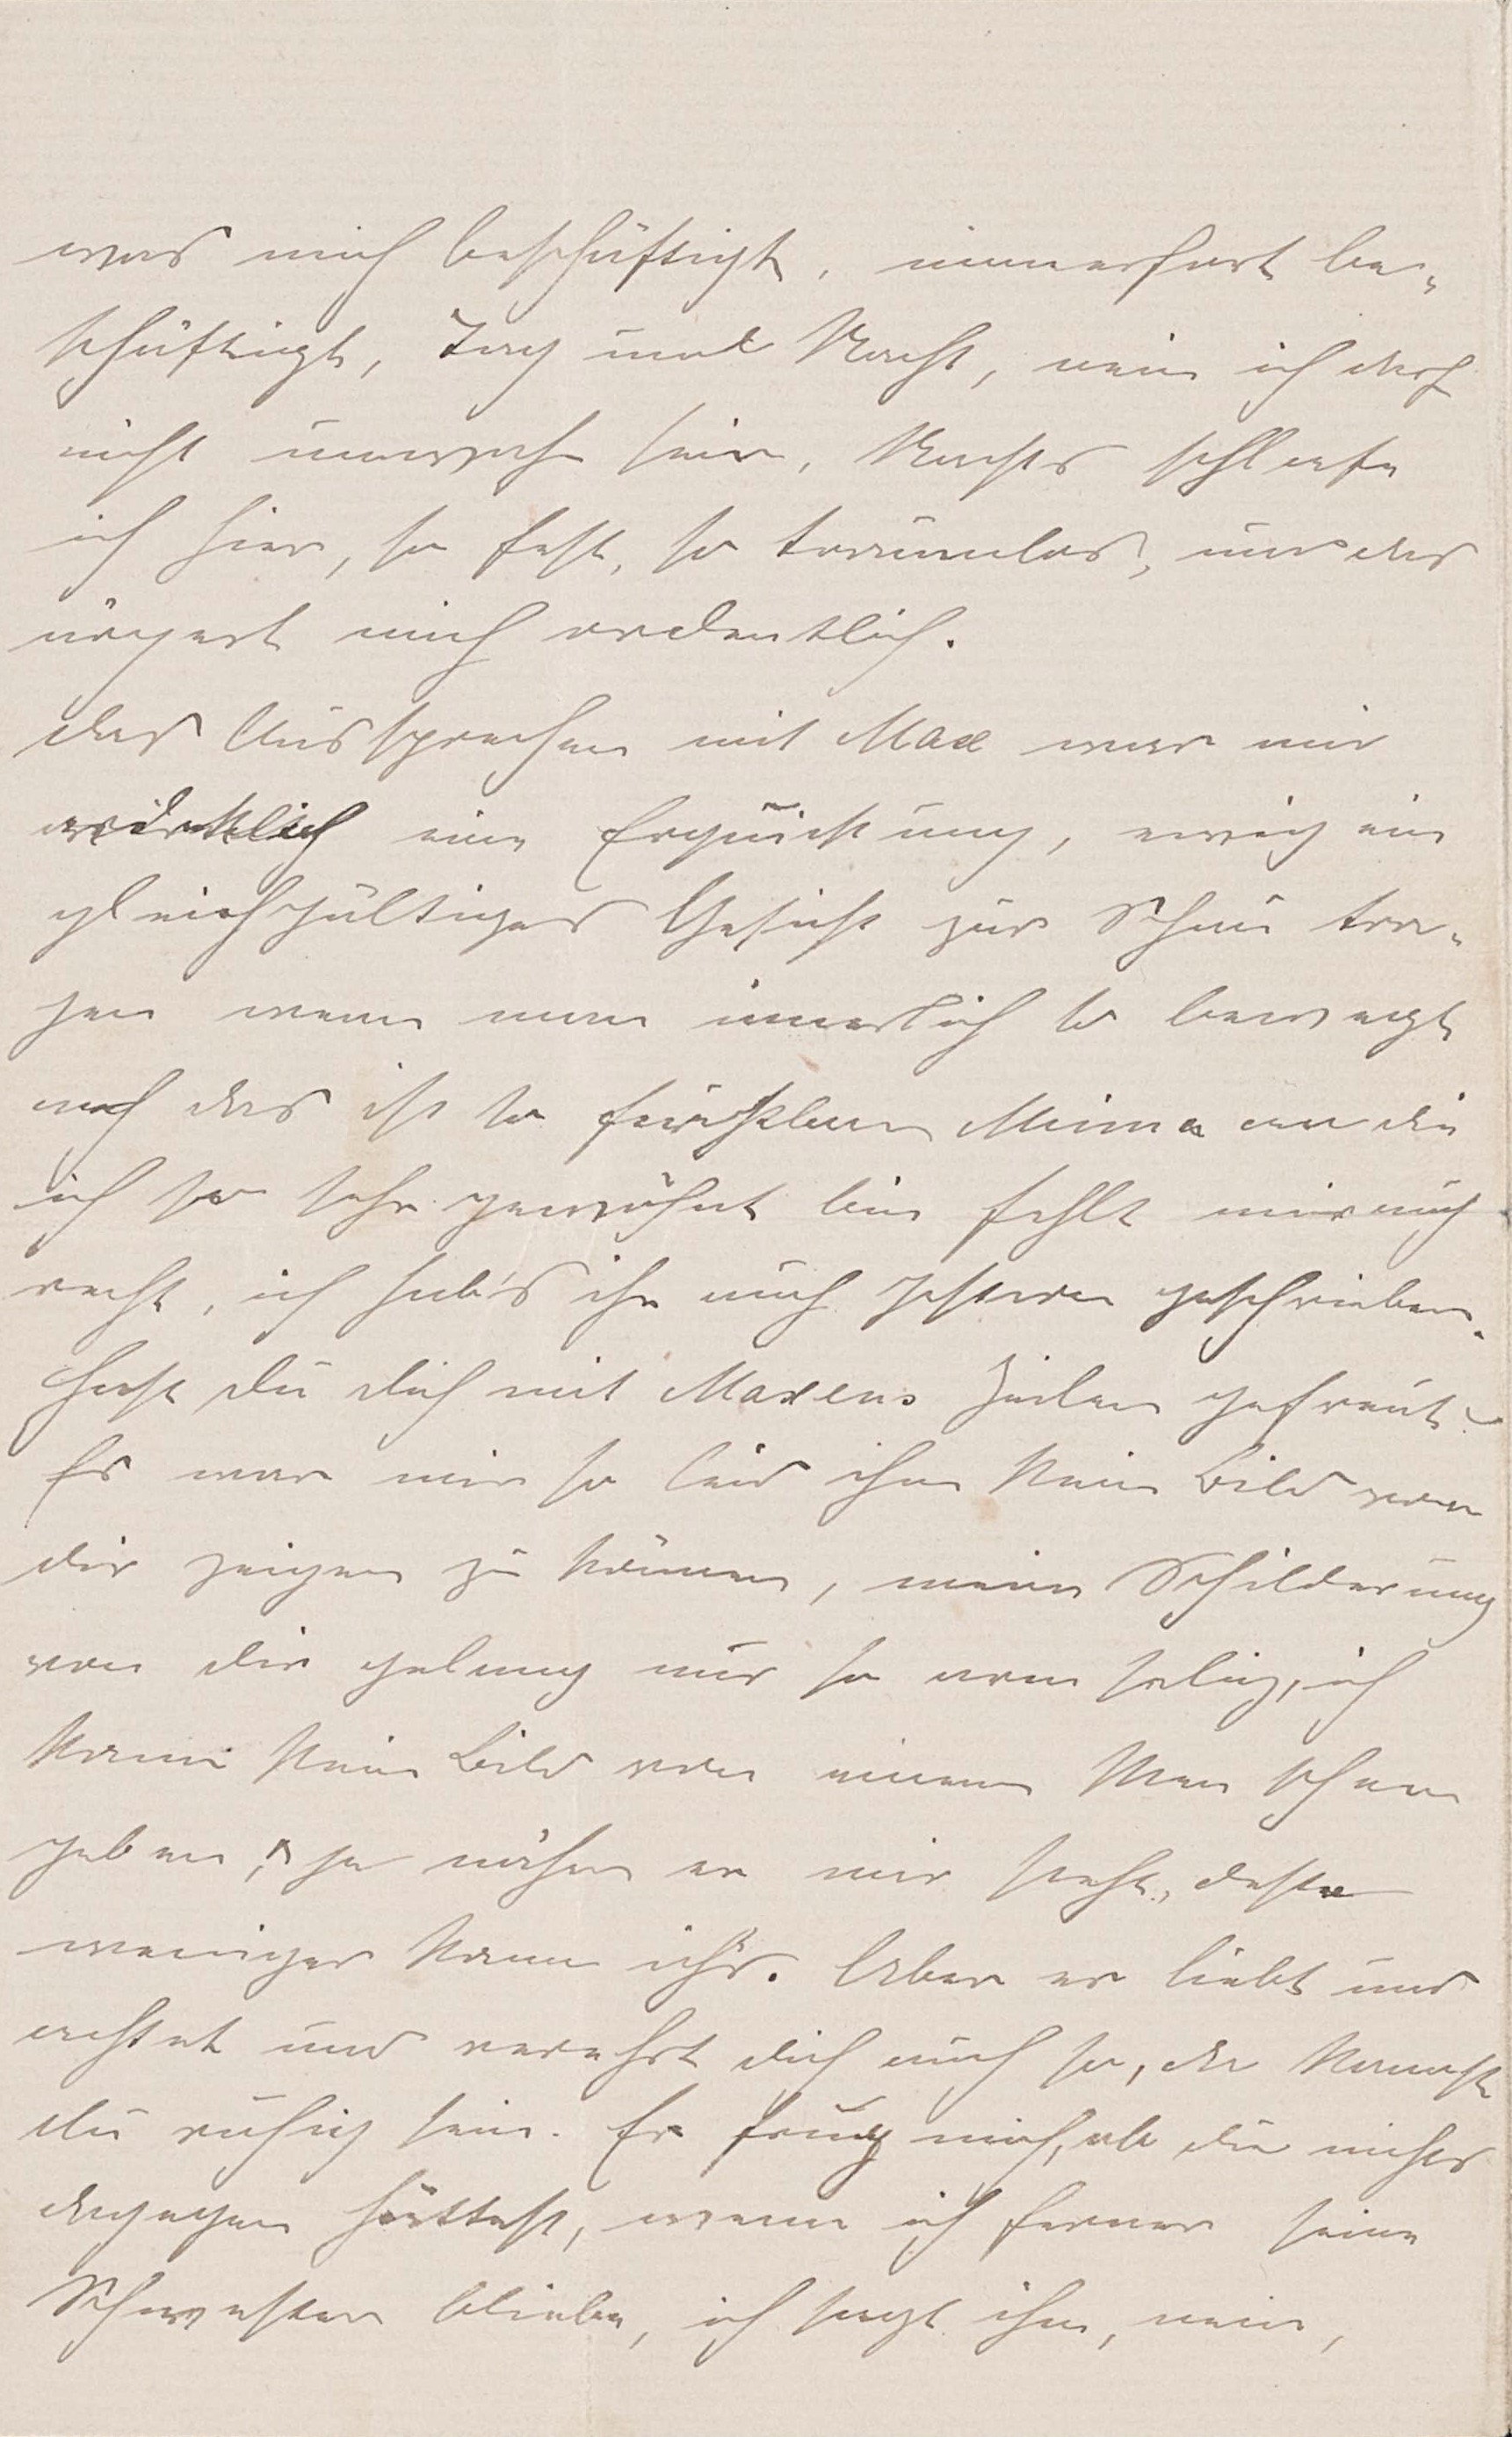 was mich beschäftigt, immerfort be-
schäftigt, Tag und Nacht, nein ich darf
nicht unwahr sein, Nachts schlafe
ich hier, so fest, so traumlos, und das
ärgert mich ordentlich.
Das Aussprechen mit Max war mir
wirklich eine Erquickung, ewig ein
gleichgültiges Gesicht zur Schau tra-
gen wenn man innerlich so bewegt
ach das ist so furchtbar Mima an die
ich so sehr gewöhnt bin fehlt mir auch
recht, ich hab's ihr auch gestern geschrieben.
Hast du dich mit Maxens Zeilen gefreut?
Es war mir so leid ihm kein Bild von
dir zeigen zu können, meine Schilderung
von dir gelang mir so armselig, ich
kann kein Bild von einem Menschen
geben, je näher er mir steht, desto
weniger kann ich's. Aber er liebt und
achtet und verehrt dich auch so, da kannst
du ruhig sein. Er frug mich, ob du nichts
dagegen hättest, wenn ich ferner seine
Schwester bliebe, ich sagt ihm, nein,